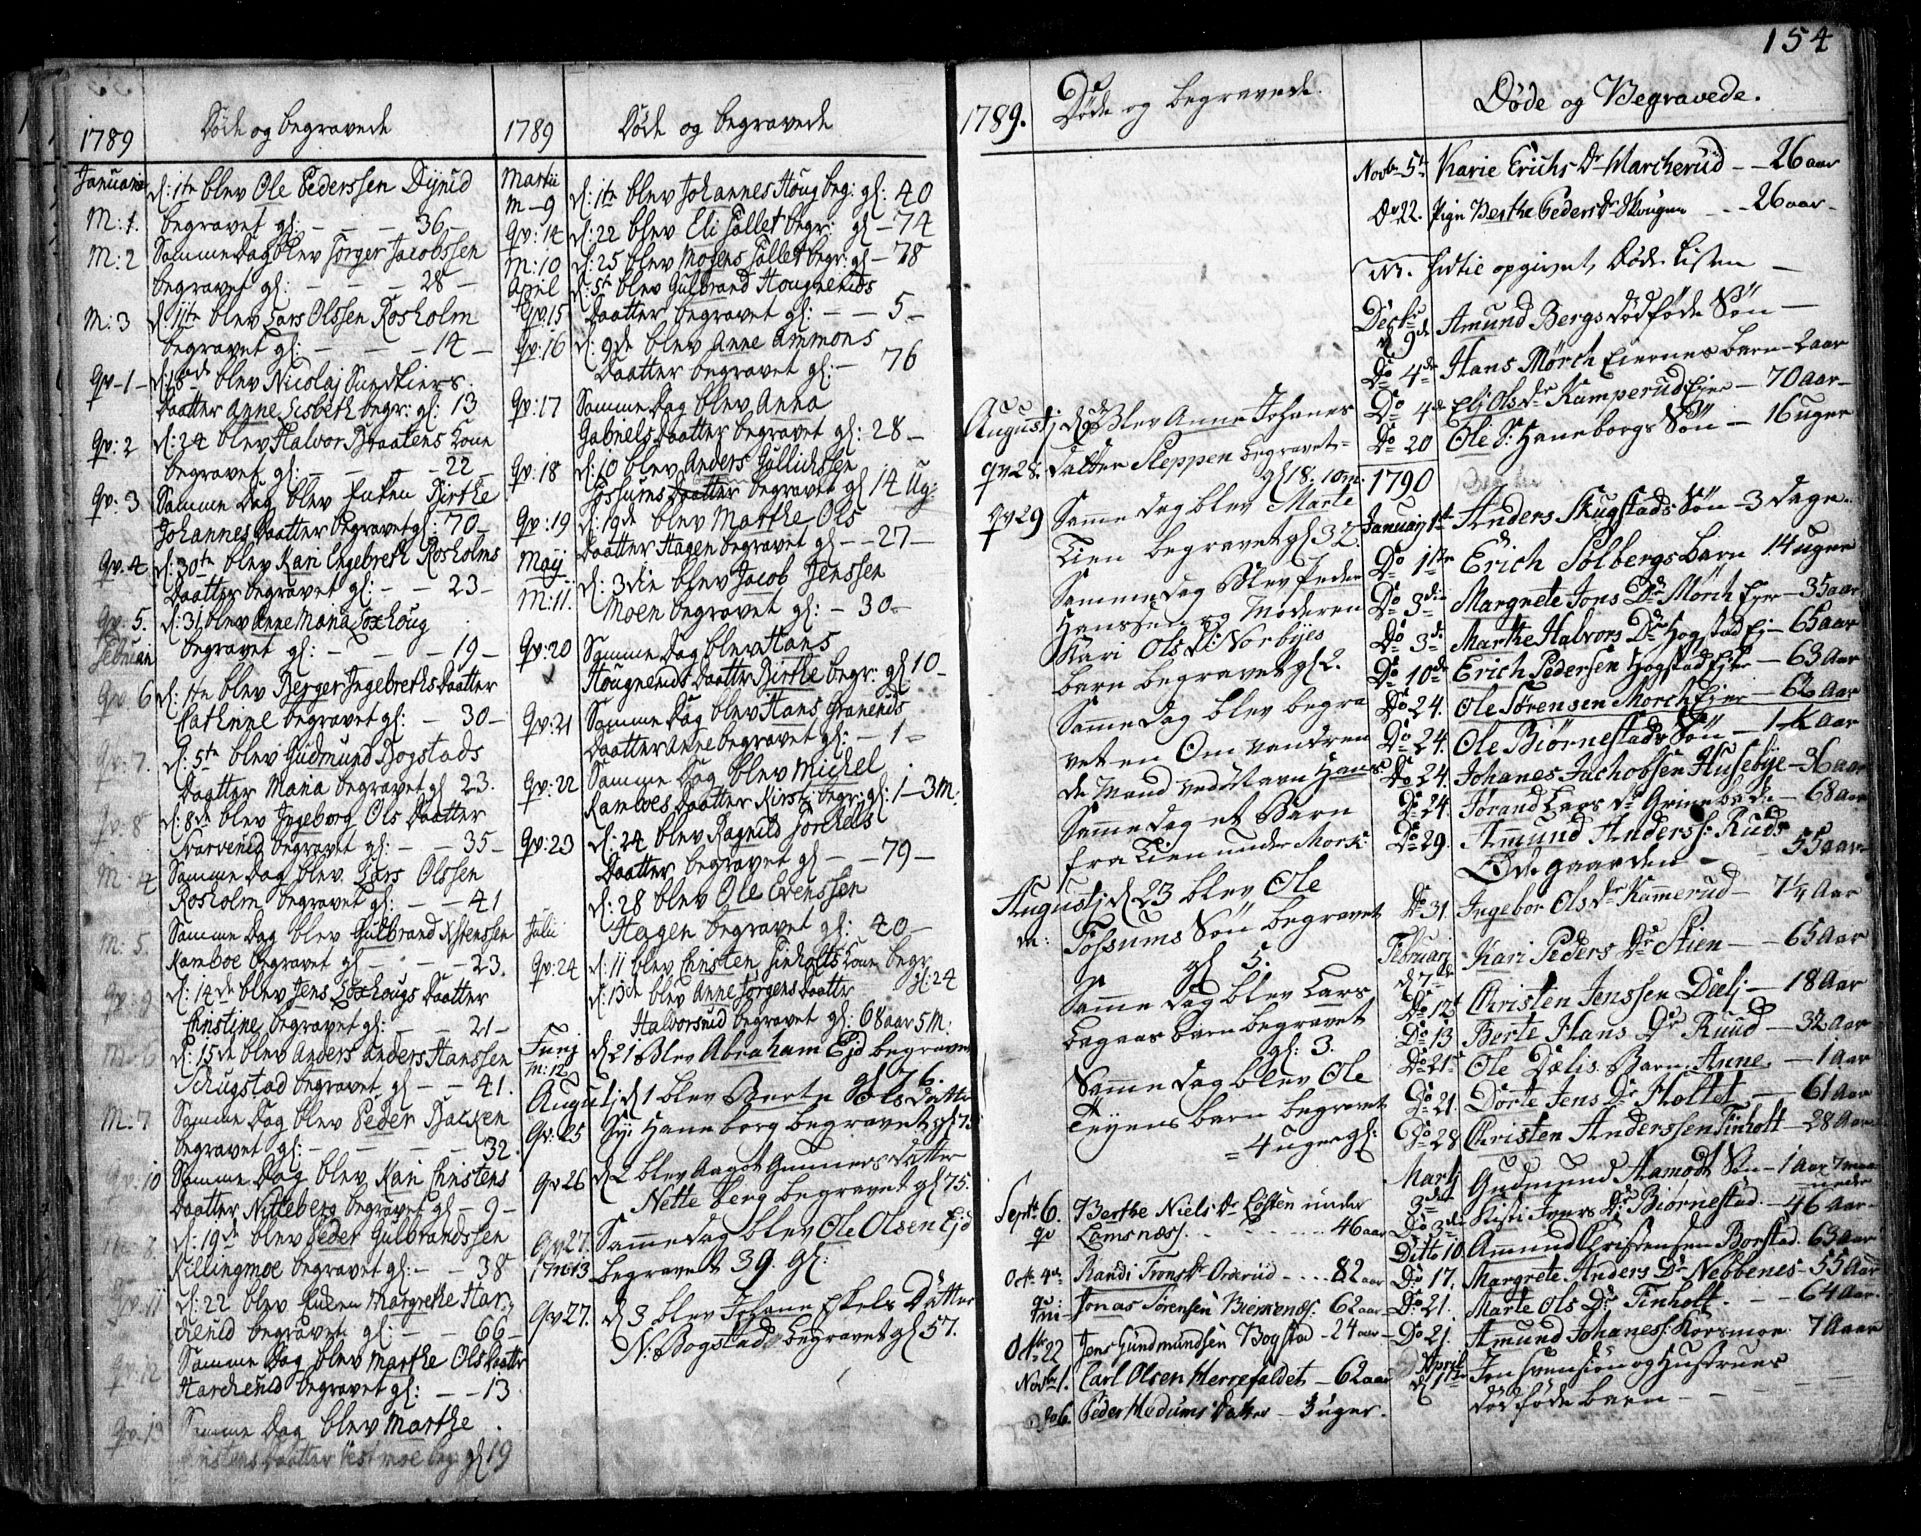 154
1789
Døde og begravede
Januari d: 1te blev Ole Pederssen Dÿrud
M: 1. begravet gl: - - - 36 -
M: 2 Samme Dag blev Jørger Jacobssen
begravet gl: - - - 28 -
M: 3 d: 11te blev Lars Olssen Rosholm
begravet gl: - - - 14 -
qv: 1 - d: 18de blev Nicolaj Sundkiers
Daatter Anne Lisbeth begr: gl: 13
qv: 2 d: 24 blev Halvor Braatens Kone
begravet gl: - - - 22 -
qv: 3 Samme Dag blev Enken Birthe
Johannes Daatter begravet gl: 70 -
qv: 4 d: 30te blev Kari Engebreth Rosholms
Daatter begravet gl: - - 23 -
qv: 5. d: 31 blev Anne Maria Loxhoug
begravet gl: - - - 19 -
Februari
qv: 6 d: 1te blev Berger Ingebreths Daatter
begravet gl: - 30 -
qv: 7. d: 5te blev Gudmund Bogstads
Daatter Maria begravet gl 23.
qv: 8 d: 8de blev Ingeborg Ols Daatter
begravet gl: - - 35 -
M: 4 Samme Dag blev Lars Olssen
Rosholm begravet gl: - - 41
M: 5. Samme Dag blev Gulbrand Østenssen
Ramboe begravet gl - - - 23.
qv: 9 d: 14de blev Jens Loxhougs Daatter
Christine begravet gl: - - 21 -
M: 6 d: 15de blev Anders Anders Hanssen
Schugstad begravet gl - - 41.
M: 7 Samme Dag blev Peder Backen
begravet gl: - - - 32.
qv: 10 Samme Dag blev Kari Christens
Daatter Nitteberg begravet gl - 9 -
M: 8 d: 19de blev Peder Gulbrandssen
Killingmoe begravet gl: - - 38
qv: 11 d: 22 blev Enken Margrethe Har-
cherud begravet gl: - - 66 -
qv: 12 Samme Dag blev Marthe Ols Daatter
Harcherud begravet gl: - - 13.
qv: 13 Samme Dag blev Marthe
Christens Daatter Vestmoe beg: gl 19
1789
Døde og begravede
Martii d: 1te blev Johannes Houg beg: gl: 40
M - 9
qv: 14 d: 22 blev Eli Sollet begr: gl - 74
M: 10 d: 25 blev Mogens Sollet begr: gl - 78
April d: 5te blev Gulbrand Hougneruds
qv: 15 Daatter begravet gl: - - 5 -
qv: 16 d: 9de blev Anne Ammons
Daatter begravet gl: - 76
qv: 17 Samme Dag blev Anna
Gabriels Daatter begravet gl: 28 -
qv: 18 d: 10 blev Anders Gullichssen
Fossums Daatter begravet gl 14 Ug:
qv: 19 d: 19de blev Marthe Ols
Daatter Hagen begravet gl - - 27 -
Maÿ d: 3die blev Jacob Jenssen
M: 11. Moen begravet gl: - 30 -
qv: 20 Samme Dag blev Hans
Hougneruds Daatter Birthe begr: gl 10 -
qv: 21 Samme Dag blev Hans Graneruds
Daatter Anne begravet gl: - 1 -
qv: 22 Samme Dag blev Michel
Ramboes Daatter Kirsti begr: gl: 1 - 3 M:
qv: 23 d: 24 blev Ragnild Torchels
Daatter begravet gl - - 79 -
d: 28 blev Ole Evenssen
Hagen begravet gl: 40 -
Julii
qv: 24 d: 11 blev Christen Finholts Kone begr
gl: 24
d: 13de blev Anne Jørgens Daatter
Halvorsrud begravet gl: 68 aar 5 M:
Junj d 21 Blev Abraham Ejd begravet
m: 12 gl 76.
Augustj d 1 blev Berte Ols Datter
qv: 25 Sÿ: Haneborg begravet gl 73
qv 26 d 2 blev Aagot Gunners Datter
Netteberg begravet gl 75.
qv 27. Samme dag blev Ole Olsen Ejd
m 13 begravet 39. gl:
qv 27. d 3 blev Johane Eskels Datter
N: Bogstad begravet gl 57.
1789.
Døde og begravede.
Augustj d 9de Blev Anne Johanes
qv 28. Datter Steppen begravet =
gl 18. 10 m.
qv 29 Samme dag blev Marte
Lien begravet gl 32.
Samme dag Blev Peder
Hanssen og Moderen
Kari Ols D: Norbÿes
barn begravet gl 2.
Samme dag blev begra
vet en Om vandren
de Mand ved Navn Hans
Samme dag et Barn
fra Lien under Mork:
Augustj d 23 blev Ole
m: Fossums Søn begravet
gl 5.
Samme dag blev Lars
barn begravet
gl: 3.
Samme dag blev Ole
barn begravet
= 4 uger gl:
Septbr 6. Berthe Niels Dr Løften under
qv Lamsnæs. - - - 46 aar
Octbr 4de Randi Trons Dr Ororud - - - 82 aar
qv: Jonas Sørensen Bierkenes. 62 aar
Octbr 22 Jens Gundmundsen Bogstad - 24 aar
Novbr 1. Carl Olsen Herrefaldet - 62 aar
Do 6. Peder Hedums Datter - 3 uger.
Døde og Begravede.
Novbr 5te Karie Erichs Dr Marcherud - - 26 aar
Do 22. Pige Berthe Peders Dr Skougen - - - 26 aar -
NB. hidtil opgivet Døde Listen -
Decbr d 9de Amund Bergs dødføde Søn -
Do 4de Hans Mørch Eiernes barn - 2 aar
Do 4de Elj Ols Dr Kamperud Ejer - 70 Aar -
Do 20 Ole Sr: Haneborgs Søn - 16 uger
1790
Januarj 1te Anders Skugstads Søn - 3 dage.
Do 1te Erich Solbergs barn 14 uger
Do 3de Margrete Jons Dr Mørch Ejer - 35 aar
Do 3de Marthe Halvors Dr Hogstad Ej - 65 aar
Do 10de Erich Pedersen Hogstad Ejer - 63 Aar
Do 24. Ole Sørensen Morch Ejer - 62 Aar
Do 24. Ole Biørnestads Søn - 1 ½ Aar
Do 24. Johanes Jachobsen Husebÿe - 36 aar
Do 24. Jørand Lars Dr - 68 aar
Do 29. Amund Anderss: Ruds
Ødegaarden - 55 aar
Do 31. Ingebor Ols Dr Kamerud - 7 ¼ Aar
Februarj d 7de Kari Peders Dr Stien - - 65 Aar
Do 12te Christen Jenssen Dælj - 18 Aar
Do 13 Berte Hans Dr Ruud - 32 Aar
Do 21de Ole Dælis Barn Anne. - 1 Aar
Do 21. Dorte Jens Dr Floltet - 61 Aar
Do 28 Christen Anderssen Finholt - 28 Aar
Martj 3de Gudmund Aamodt Søn - 1 Aar 7 maa
neder
Do 3de Kisti Ivers Dr Biørnestad. - 46 Aar -
Ditto 10. Ammund Christensen Borstad. 63 aar
Do 17. Margrete Anders Dr Nebbenes - 55 Aar
Do 21. Marte Ols Dr Finholt. - - - 64 Aar.
Do 21. Amund Johaness: Korsmoe 7 Aar
April d 1te Jon Svension og Hustrues
dødføde barn - - - -